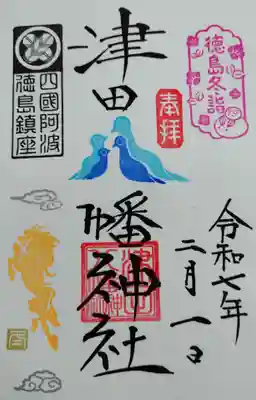 徳島冬詣
奉拝
令和七年
二月一日
津田八幡神社
四國阿波
徳島鎮座